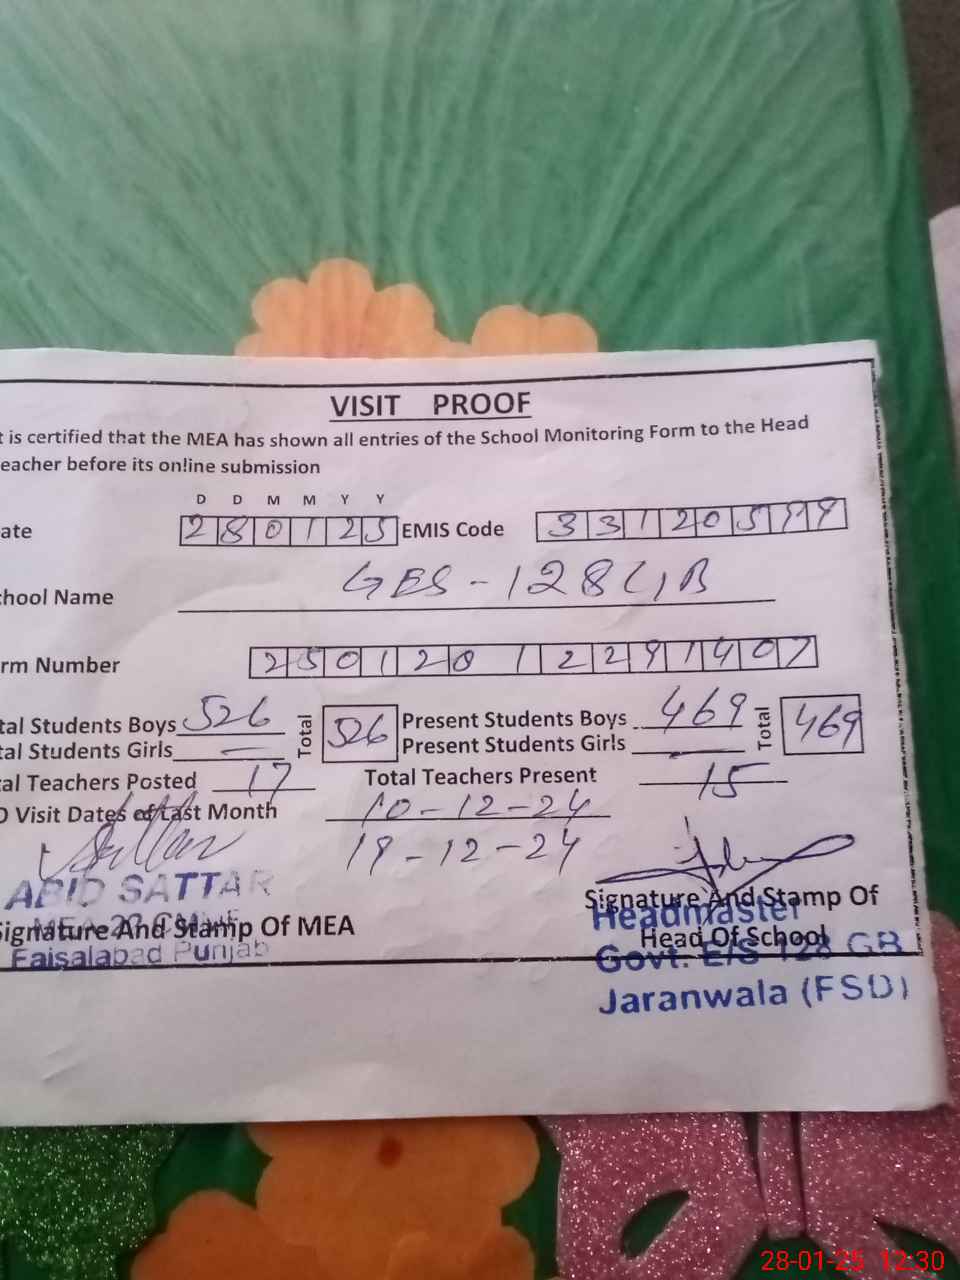 VISIT PROOF
t is certified that the MEA has shown all entries of the School Monitoring Form to the Head
eacher before its online submission
D D M M Y Y
ate 280125 EMIS Code 331205
chool Name GES - 128 GB
rm Number
tal Students Boys 526 Total 526 Present Students Boys 469 Total 469
tal Students Girls — Present Students Girls —
al Teachers Posted 17 Total Teachers Present 15
O Visit Dates of Last Month 10-12-24
19-12-24
ABID SATTAR
ignature And Stamp Of MEA
Faisalabad Punjab
Signature And Stamp Of
Headmaster
Head Of School
Govt. E/S 128 GB
Jaranwala (FSD)
28-01-25 12:30